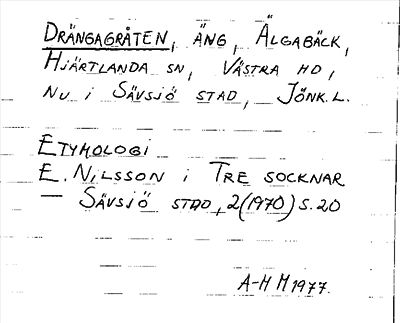 DRÄNGAGRÅTEN, ÄNG, ÄLGABÄCK,
HJÄRTLANDA SN, VÄSTRA HD,
NU I SÄVSJÖ STAD, JÖNK. L.
ETYMOLOGI
E. NILSSON I TRE SOCKNAR
— SÄVSJÖ STAD, 2(1970) S. 20
A-M M 1977.